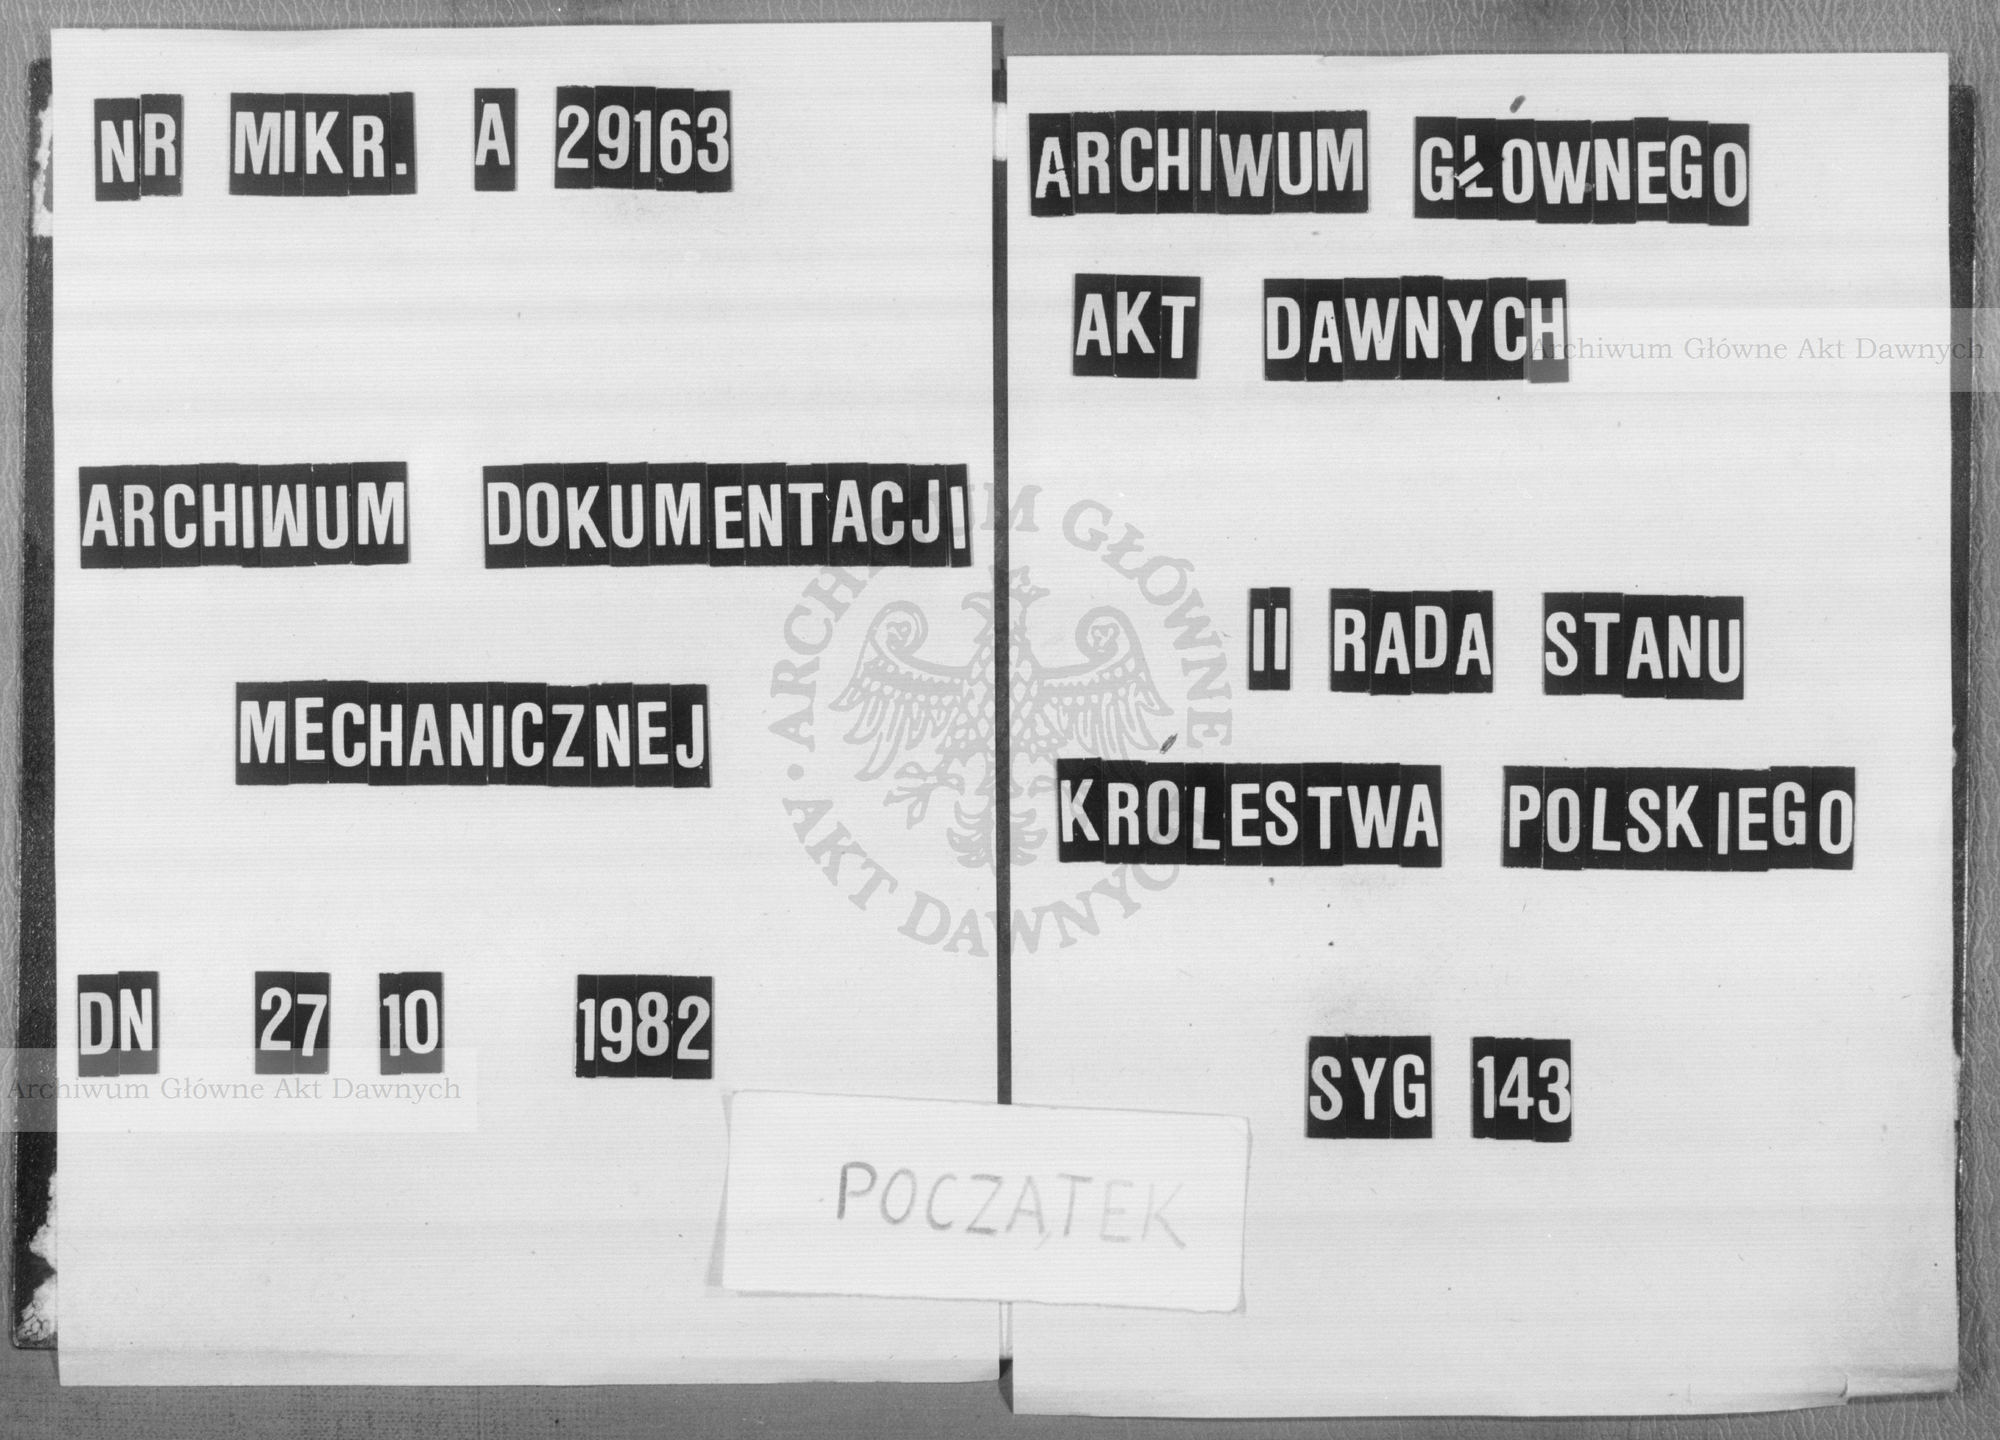 NR MIKR. A 29163
ARCHIWUM DOKUMENTACJI
MECHANICZNEJ
DN 27 10 1982
ARCHIWUM GŁÓWNEGO
AKT DAWNYCH
II RADA STANU
KRÓLESTWA POLSKIEGO
SYG 143
POCZĄTEK
Archiwum Główne Akt Dawnych
Archiwum Główne Akt Dawnych
ARCHIWUM GŁÓWNE • AKT DAWNYCH •